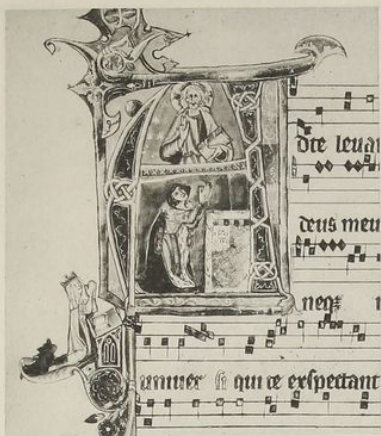 Ad te leua
deus meu
neqꝫ
uniuer si qui te exspectant